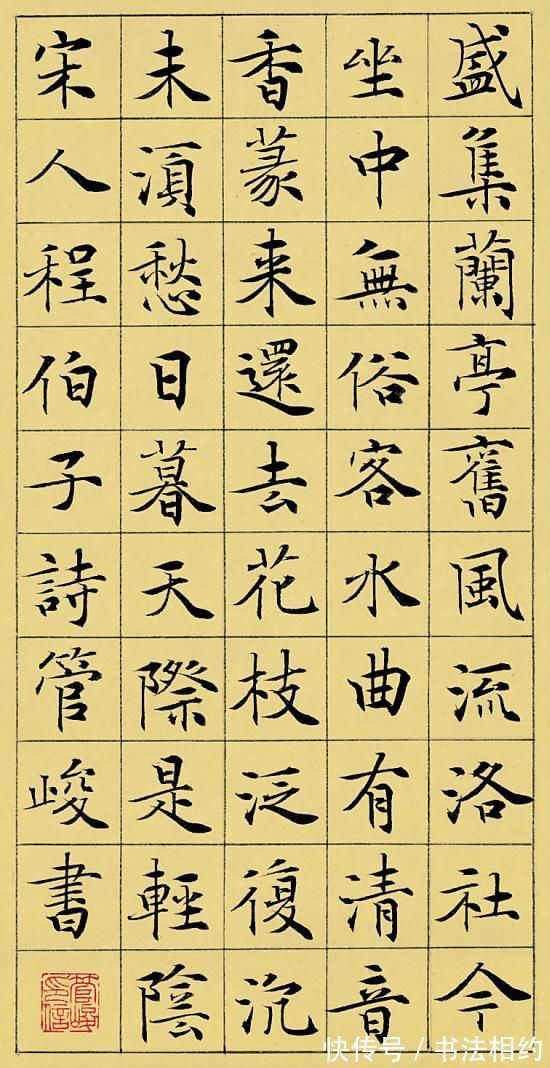 盛集蘭亭舊風流洛社今
坐中無俗客水曲有清音
香篆来還去花枝泛復沉
未湏愁日暮天際是輕陰
宋人程伯子詩管峻書
管峻印信
快传号/书法相约